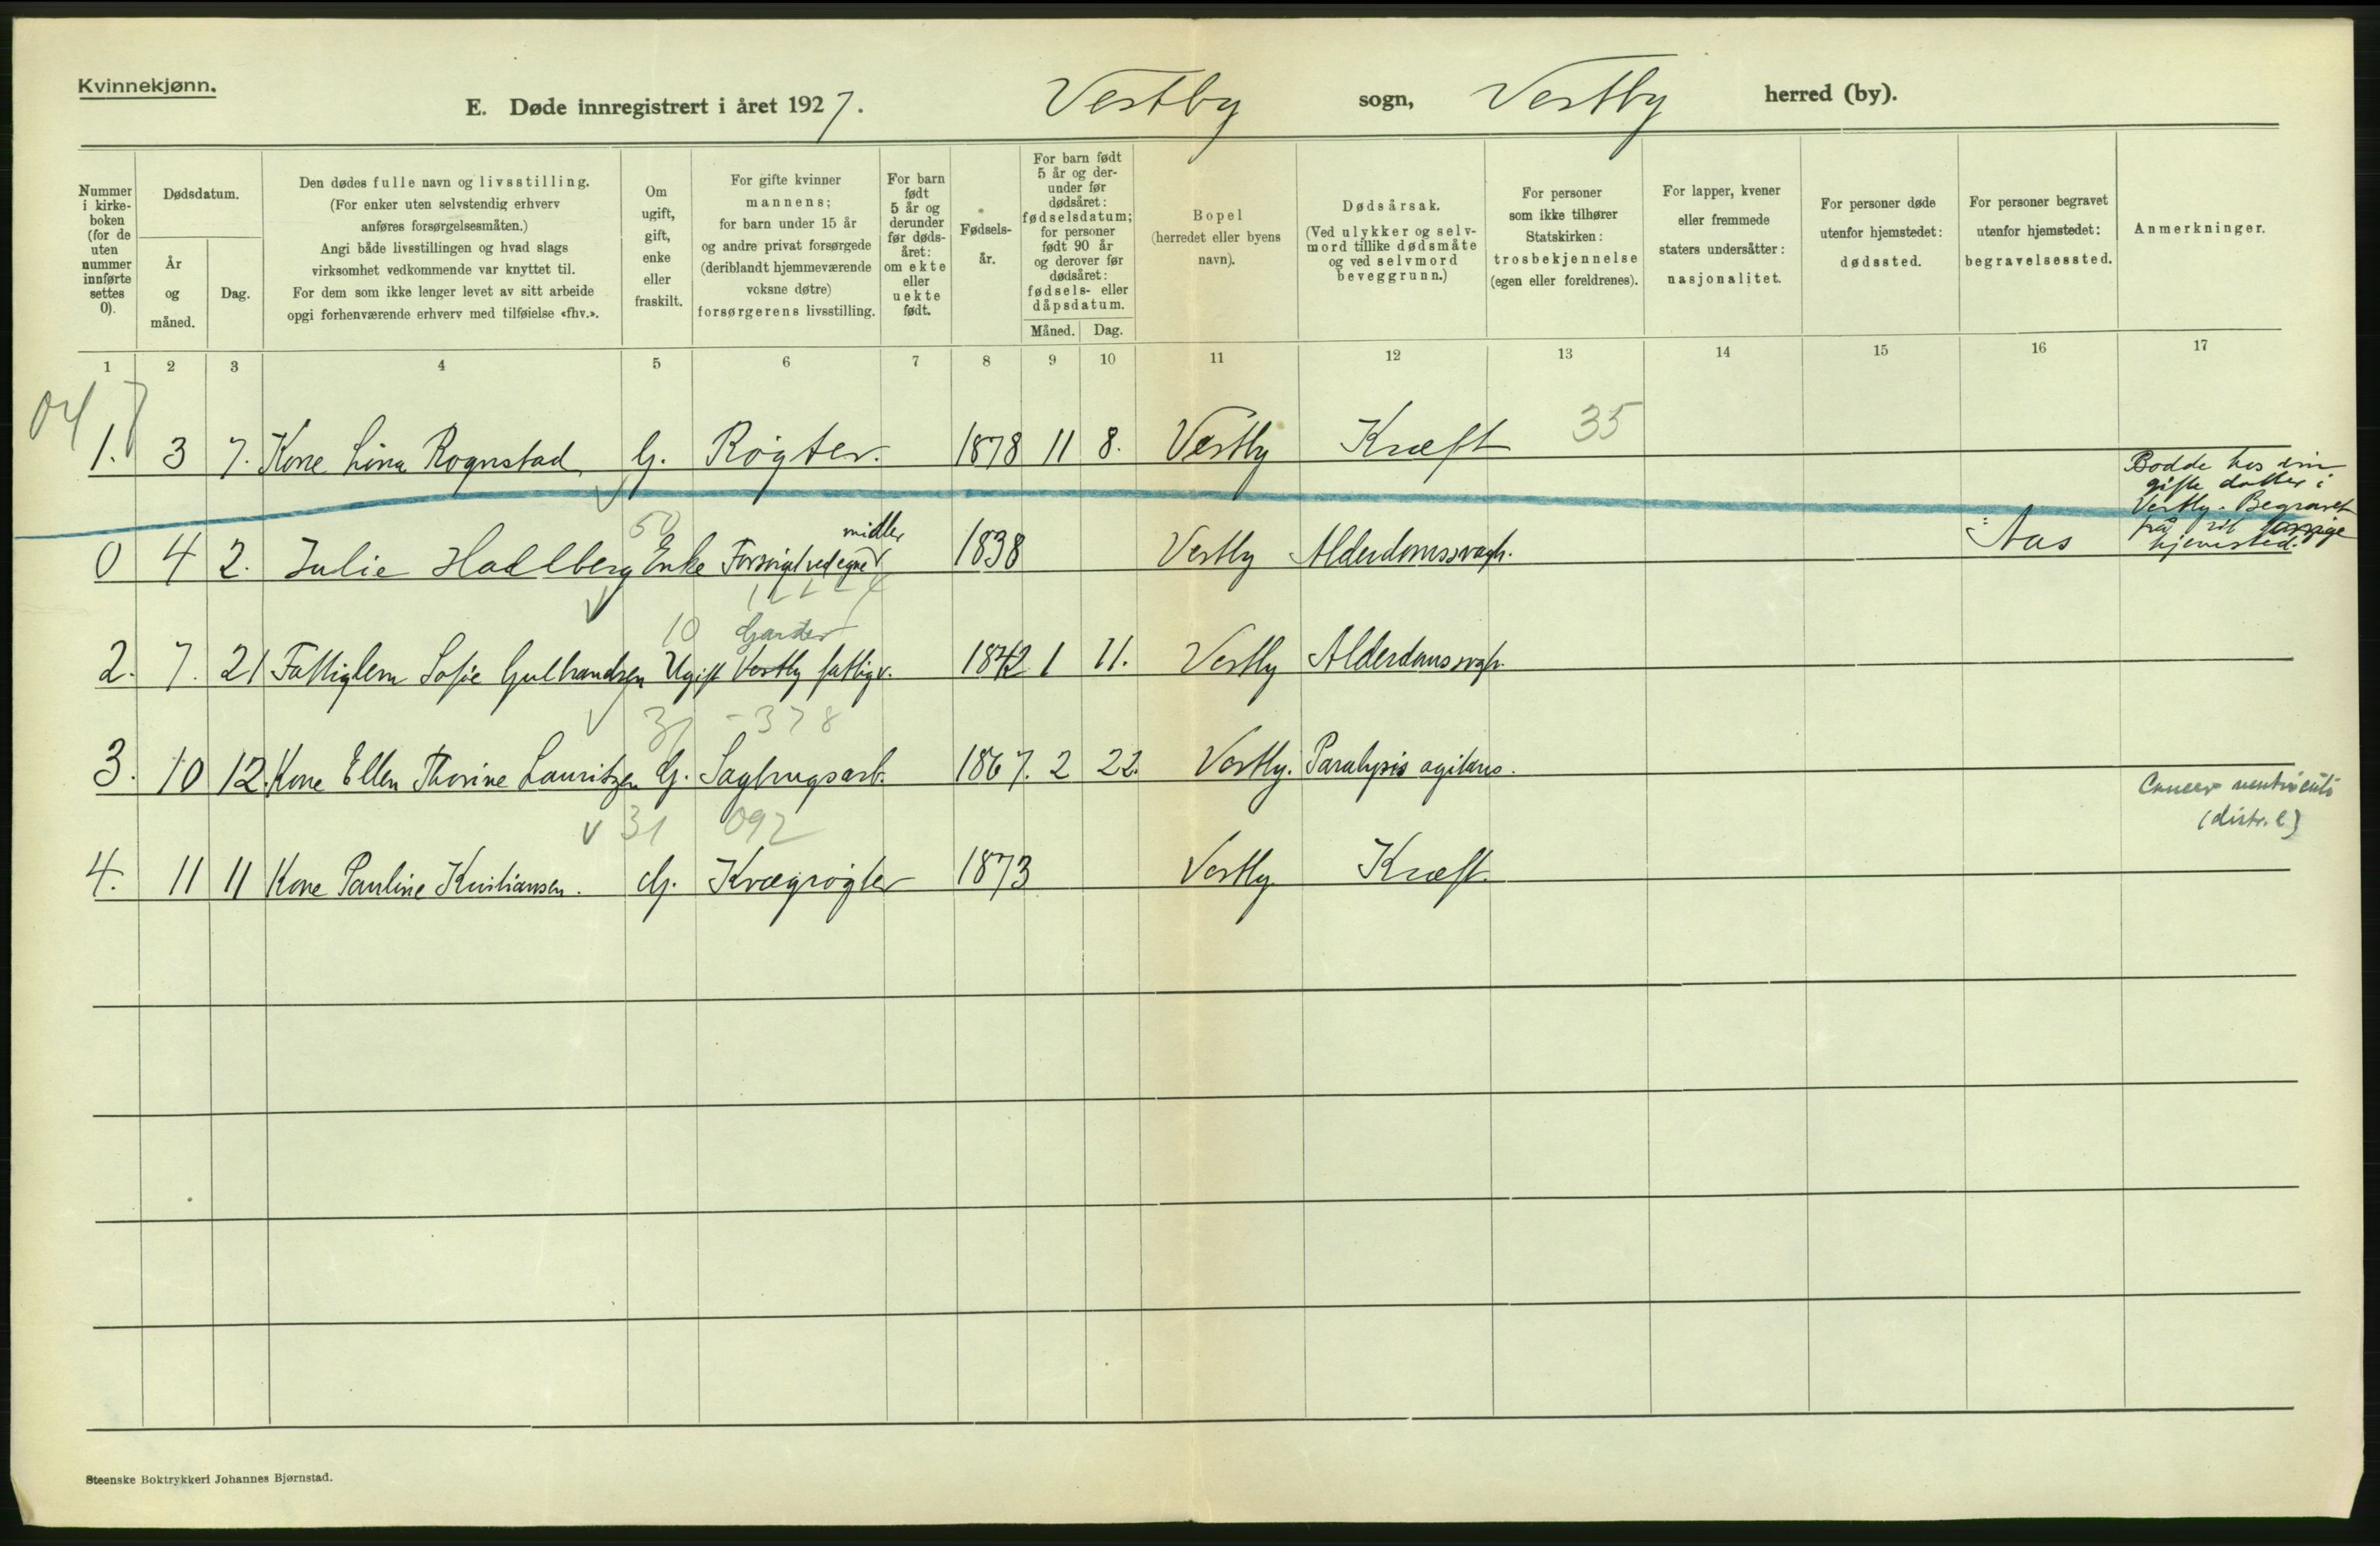 Kvinnekjønn.
E. Døde innregistrert i året 1927. Vestby sogn, Vestby herred (by).
Nummer i kirke-boken (for de uten nummer innførte settes 0).
Dødsdatum.
År og måned.
Dag.
Den dødes fulle navn og livsstilling.
(For enker uten selvstendig erhverv
anføres forsørgelsesmåten.)
Angi både livsstillingen og hvad slags
virksomhet vedkommende var knyttet til.
For dem som ikke lenger levet av sitt arbeide
opgi forhenværende erhverv med tilføielse «fhv.».
Om ugift, gift, enke eller fraskilt.
For gifte kvinner
mannens;
for barn under 15 år
og andre privat forsørgede
(deriblandt hjemmeværende
voksne døtre)
forsørgerens livsstilling.
For barn født 5 år og derunder før døds-året: om ekte eller uekte født.
Fødsels-år.
For barn født
5 år og der-
under før
dødsåret:
fødselsdatum;
for personer
født 90 år
og derover før
dødsåret:
fødsels- eller
dåpsdatum.
Måned. Dag.
Bopel
(herredet eller byens
navn).
Dødsårsak.
(Ved ulykker og selv-
mord tillike dødsmåte
og ved selvmord
beveggrunn.)
For personer
som ikke tilhører
Statskirken:
trosbekjennelse
(egen eller foreldrenes).
For lapper, kvener
eller fremmede
staters undersåtter:
nasjonalitet.
For personer døde
utenfor hjemstedet:
dødssted.
For personer begravet
utenfor hjemstedet:
begravelsessted.
Anmerkninger.
1 2 3 4 5 6 7 8 9 10 11 12 13 14 15 16 17
04 7 35
1. 3 7. Kone Lina Rognstad G. Røgter. 1878 11 8. Vestby Kræft
Bodde hos sin
gifte datter i
Vestby. Begravet
på sit forrige
hjemsted.
50 midler
0 4 2. Julie Hadlberg Enke Forsørget ved egne 1838 Vestby Alderdomssvagh. Aas
10 Garder
2. 7. 21 Fattiglem Sofie Gulbrandsen Ugift Vestby fattigv. 1842 1 11. Vestby Alderdomssvagh.
31 - 378
3. 10 12. Kone Ellen Thorine Lauritzen G. Sagbrugsarb. 1867. 2 22. Vestby. Paralysis agitans.
31 092
Cancer ventriculi
(distr.l)
4. 11 11 Kone Pauline Kristiansen. G. Kvægrøgter 1873 Vestby Kræft.
Steenske Boktrykkeri Johannes Bjørnstad.